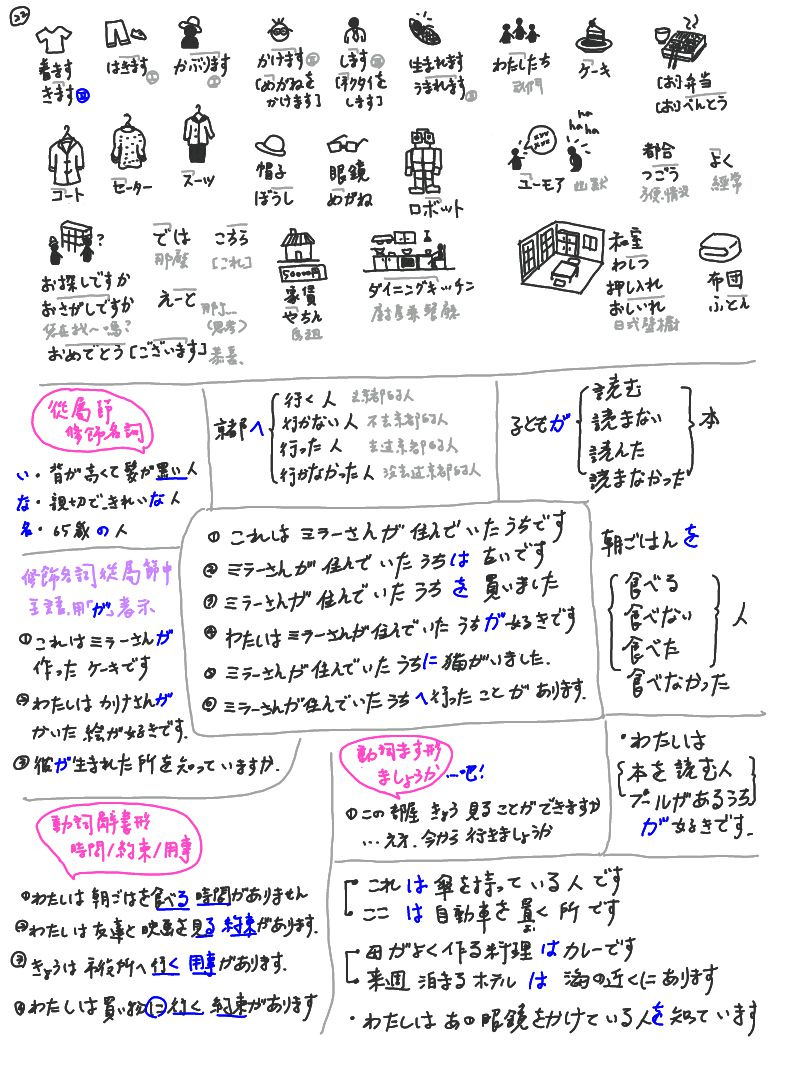 22
着ます
きます
はきます
かぶります
かけます
[めがねを
かけます]
します
[ネクタイを
します]
生まれます
うまれます
わたしたち
我們
ケーキ
[お]弁当
[お]べんとう
コート
セーター
スーツ
帽子
ぼうし
眼鏡
めがね
ロボット
ha
ha ha
ユーモア 幽默
都合
つごう
方便.情況
よく
経常
?
お探しですか
おさがしですか
您在找~嗎?
では
那麼
こちら
[これ]
えーと
(思考)
おめでとう[ございます] 恭喜.
50000円
家賃
やちん
房租
ダイニングキッチン
廚房兼餐廳
和室
わしつ
押し入れ
おしいれ
日式壁櫥
布団
ふとん
從屬節
修飾名詞
い・背が高くて髪が黒い人
な・親切できれいな人
名・65歳の人
京都へ
行く人 去京都的人
行かない人 不去京都的人
行った人 去過京都的人
行かなかった人 沒去過京都的人
子どもが
読む
読まない
読んだ
読まなかった
本
修飾名詞從屬節中
主語.用「が」表示
①これはミラーさんが
作ったケーキです
②わたしはカリナさんが
かいた絵が好きです.
③彼が生まれた所を知っていますか.
① これはミラーさんが住んでいたうちです
② ミラーさんが住んでいたうちは古いです
③ ミラーさんが住んでいたうちを買いました
④ わたしはミラーさんが住んでいたうちが好きです
⑤ ミラーさんが住んでいたうちに猫がいました.
⑥ ミラーさんが住んでいたうちへ行ったことがあります.
朝ごはんを
食べる
食べない
食べた
食べなかった
人
動詞ます形
ましょうか …吧!
①この部屋きょう見ることができますか
…ええ.今から行きましょうか
・わたしは
本を読む人
プールがあるうち
が好きです.
動詞辭書形
時間/約束/用事
①わたしは朝ごはを食べる時間がありません
②わたしは友達と映画を見る約束があります.
③きょうは市役所へ行く用事があります.
④わたしは買い物に行く約束があります
これは傘を持っている人です
ここは自動車を置く所です
お
母がよく作る料理はカレーです
来週泊まるホテルは海の近くにあります
・わたしはあの眼鏡をかけている人を知っています